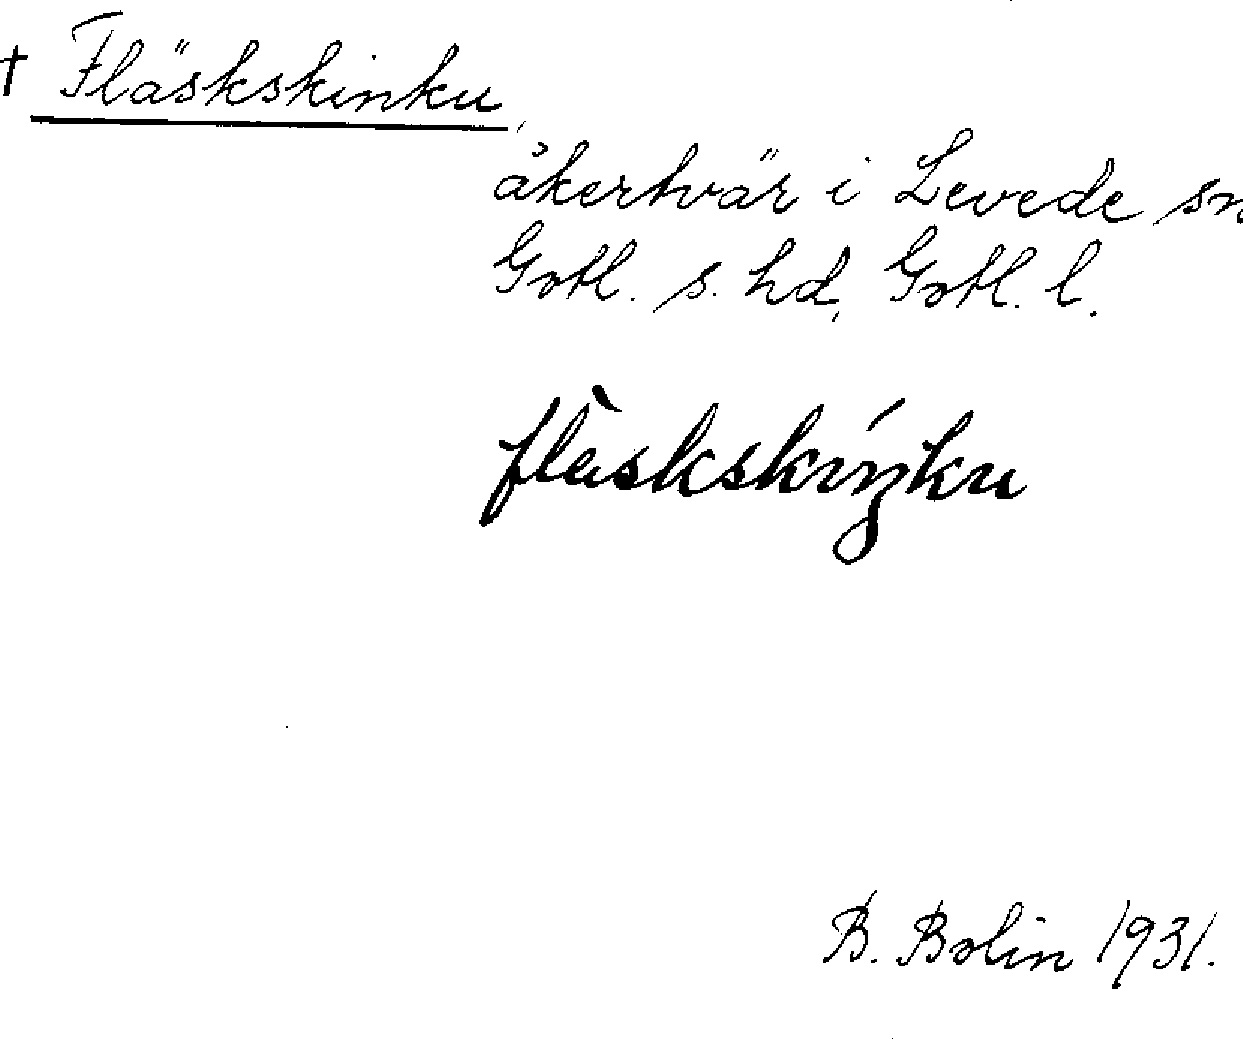 † Fläskskinku,
åkertvär i Levede sn
Gotl. s. hd, Gotl. l.
flàskskíŋku
B. Bolin 1931.